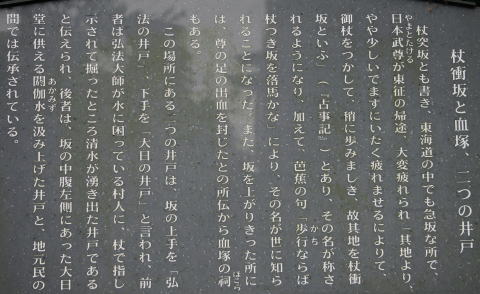 杖衝坂と血塚、二つの井戸
杖突坂とも書き、東海道の中でも急坂な所で、
やまとたける
日本武尊が東征の帰途、大変疲れられ「其地より、
やや少しいでますにいたく疲れませるによりて、
御杖をつかして、稍に歩みましき、故其地を杖衝
坂といふ」(『古事記』)とあり、その名が称さ
かち
れるようになり、加えて、芭蕉の句「歩行ならば
杖つき坂を落馬かな」により、その名が世に知ら
れることになった。また、坂を上がりきった所に
ほこら
は、尊の足の出血を封じたとの所伝から血塚の祠
もある。
この場所にある二つの井戸は、坂の上手を「弘
法の井戸」、下手を「大日の井戸」と言われ、前
者は弘法大師が水に困っている村人に、杖で指し
示されて掘ったところ清水が湧き出た井戸である
と伝えられ、後者は、坂の中腹左側にあった大日
あかみず
堂に供える閼伽水を汲み上げた井戸と、地元民の
間では伝承されている。